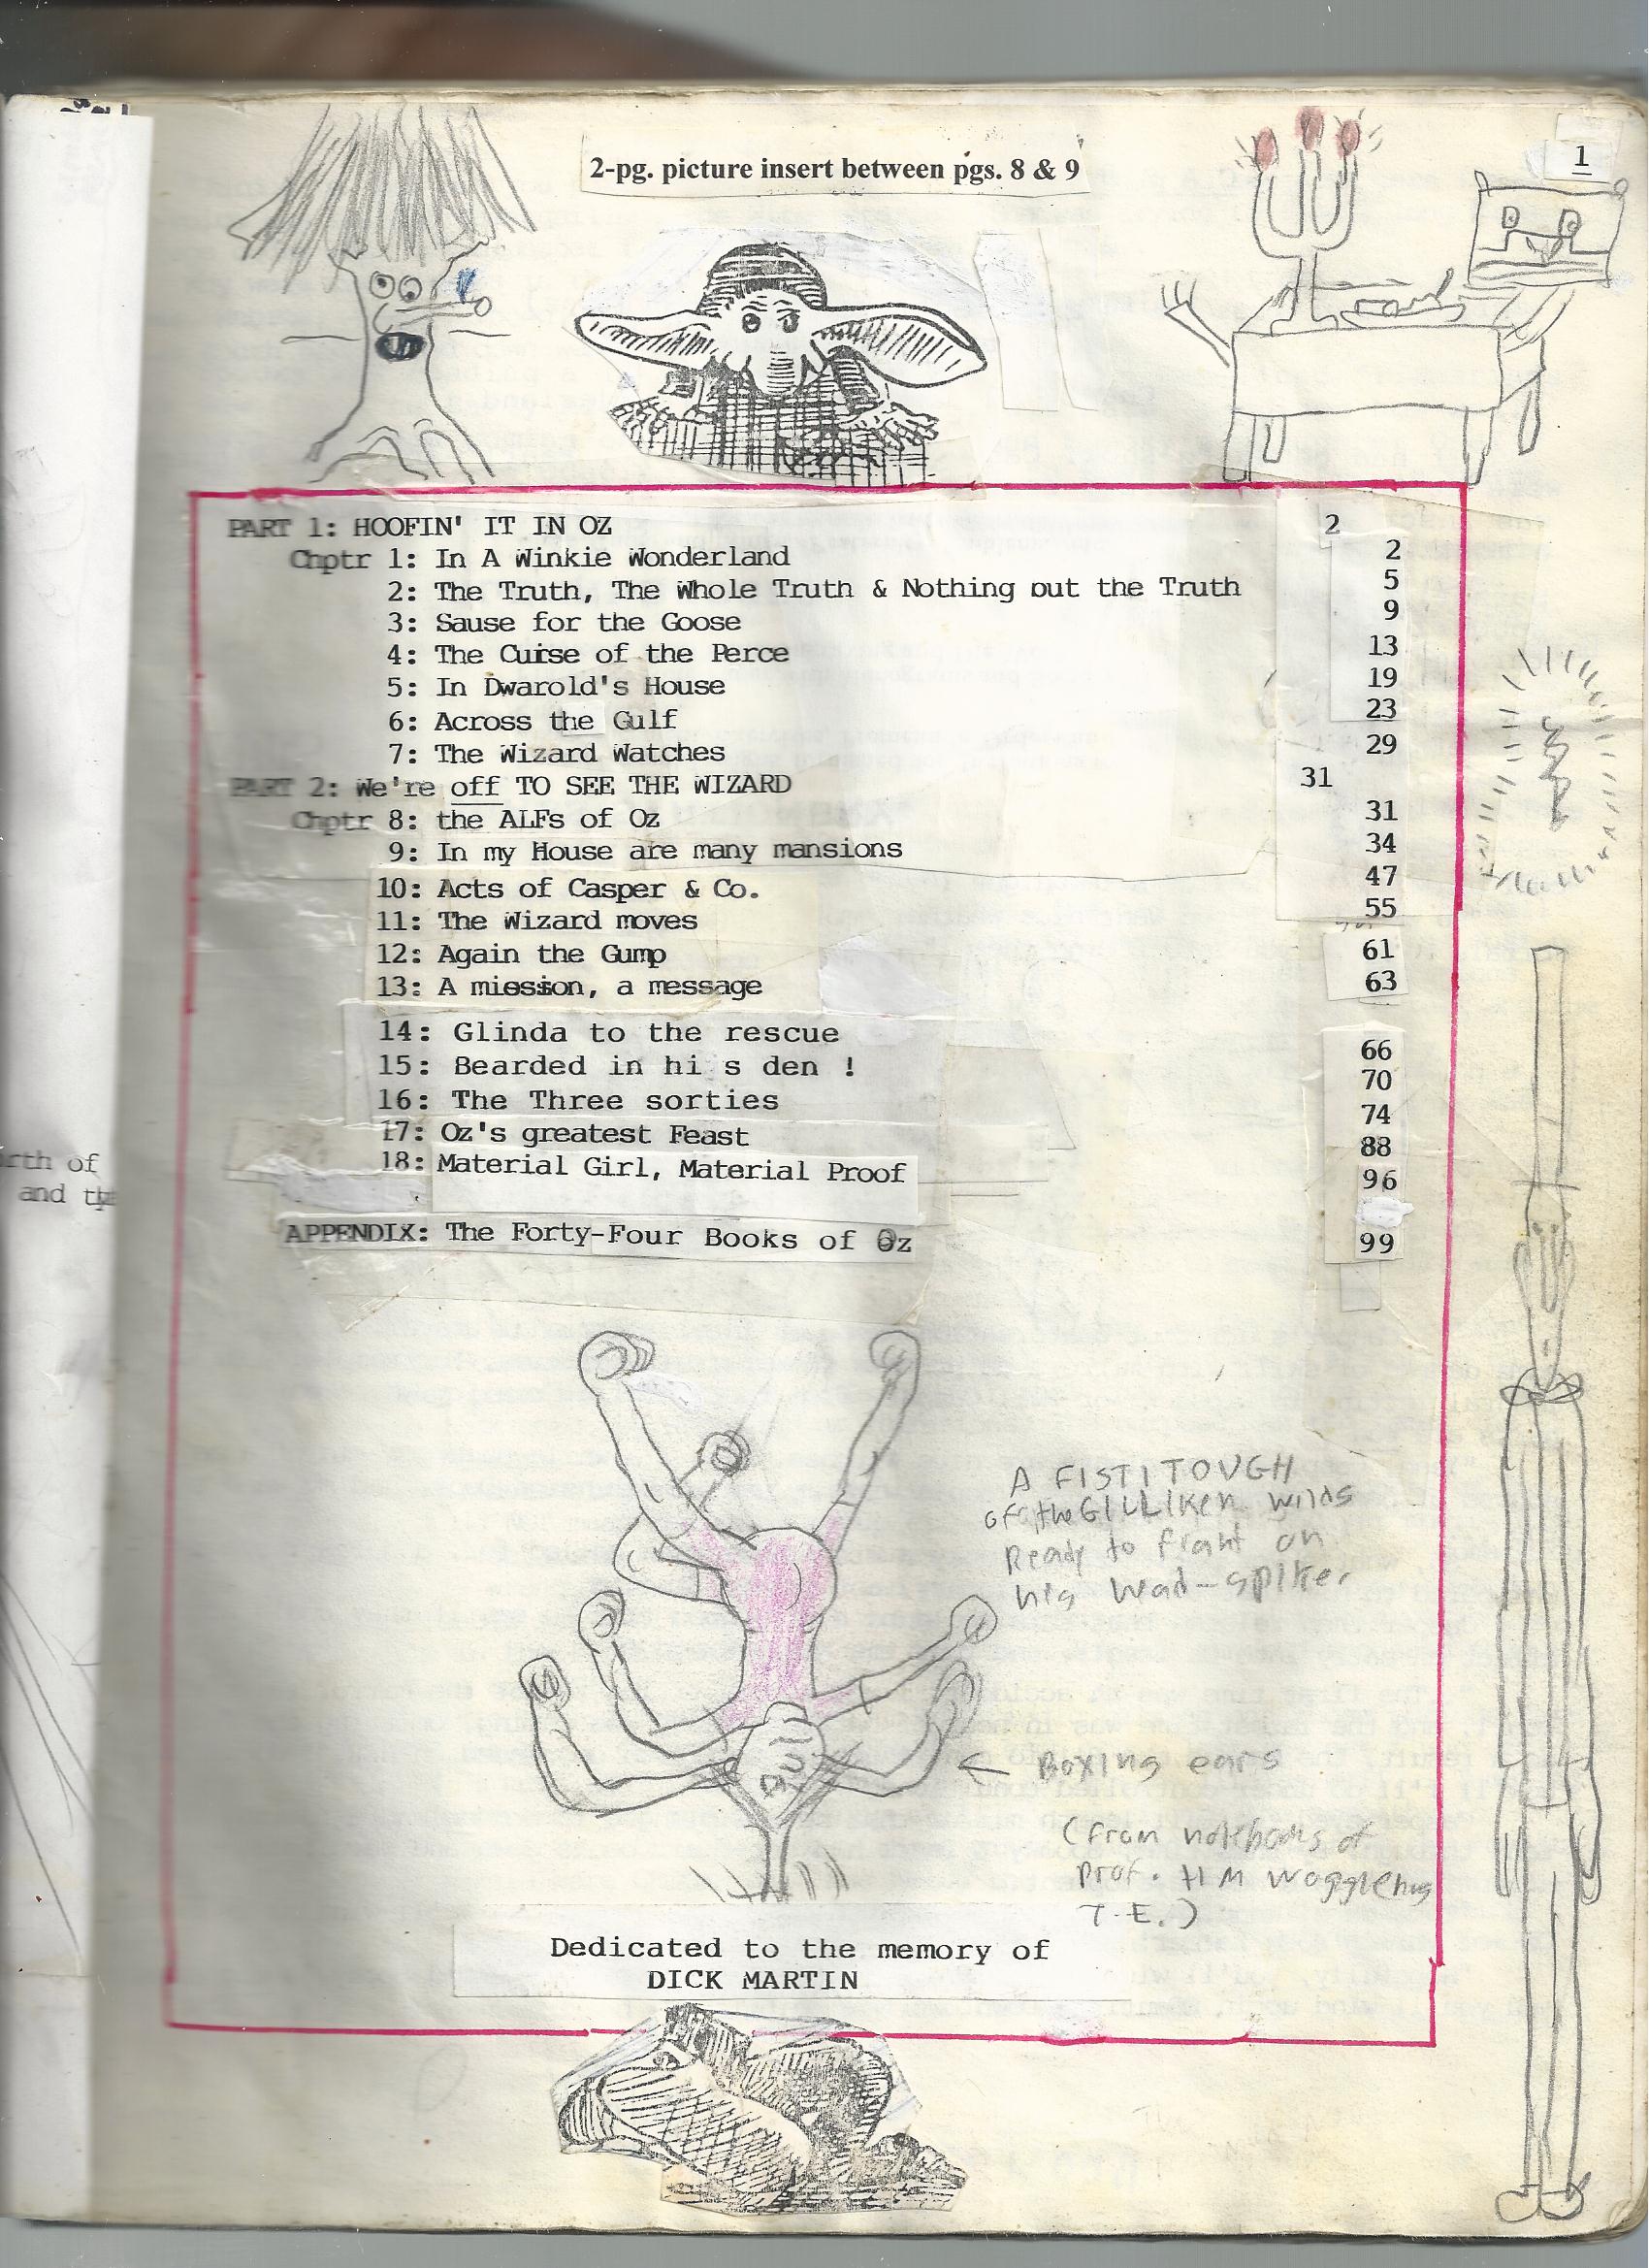 2-pg. picture insert between pgs. 8 & 9
1
PART 1: HOOFIN' IT IN OZ 2
Chptr 1: In A Winkie Wonderland 2
2: The Truth, The Whole Truth & Nothing but the Truth 5
3: Sause for the Goose 9
4: The Curse of the Perce 13
5: In Dwarold's House 19
6: Across the Gulf 23
7: The Wizard Watches 29
PART 2: We're off TO SEE THE WIZARD 31
Chptr 8: the ALFs of Oz 31
9: In my House are many mansions 34
10: Acts of Casper & Co. 47
11: The Wizard moves 55
12: Again the Gump 61
13: A mission, a message 63
14: Glinda to the rescue 66
15: Bearded in hi s den ! 70
16: The Three sorties 74
17: Oz's greatest Feast 88
18: Material Girl, Material Proof 96
APPENDIX: The Forty-Four Books of Oz 99
irth of
and the
A FISTITOUGH
of the GILLIKen wilds
Ready to fight on
his wad-spike.
← Boxing ears
(from notebooks of
Prof. H M Wogglebug
T.E.)
Dedicated to the memory of
DICK MARTIN